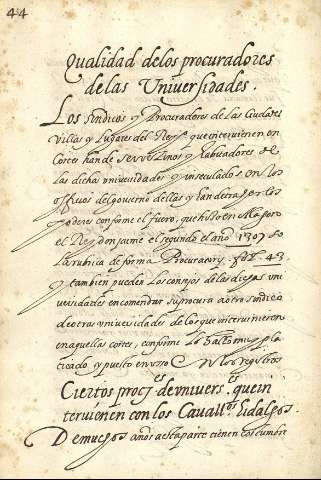 44
Qualidad delos procuradores
delas Universidades.
Los sindicos y Procuradores de las Ciudades
Villas y Lugares del Reyno que intervienen en
Cortes han de ser vezinos y habitadores de
las dichas universidades y inseculados en los
officios del govierno dellas y han de traer los
poderes conforme el fuero, que hizo en
el Rey don Jaime el segundo el año 1307 so
la rubrica de forma Procuratorij. fol. 43.
y tambien pueden los consejos delas dichas uni
versidades encomendar su procura a otro sindico
de otras universidades de los que intervinieron
en aquellas cortes, conforme lo
ticado y puesto en uso los registros
Ciertos procres. de univers.es que in
tervienen con los Cavall.os Hidalgos.
De muchos años a esta parte tienen costumbre